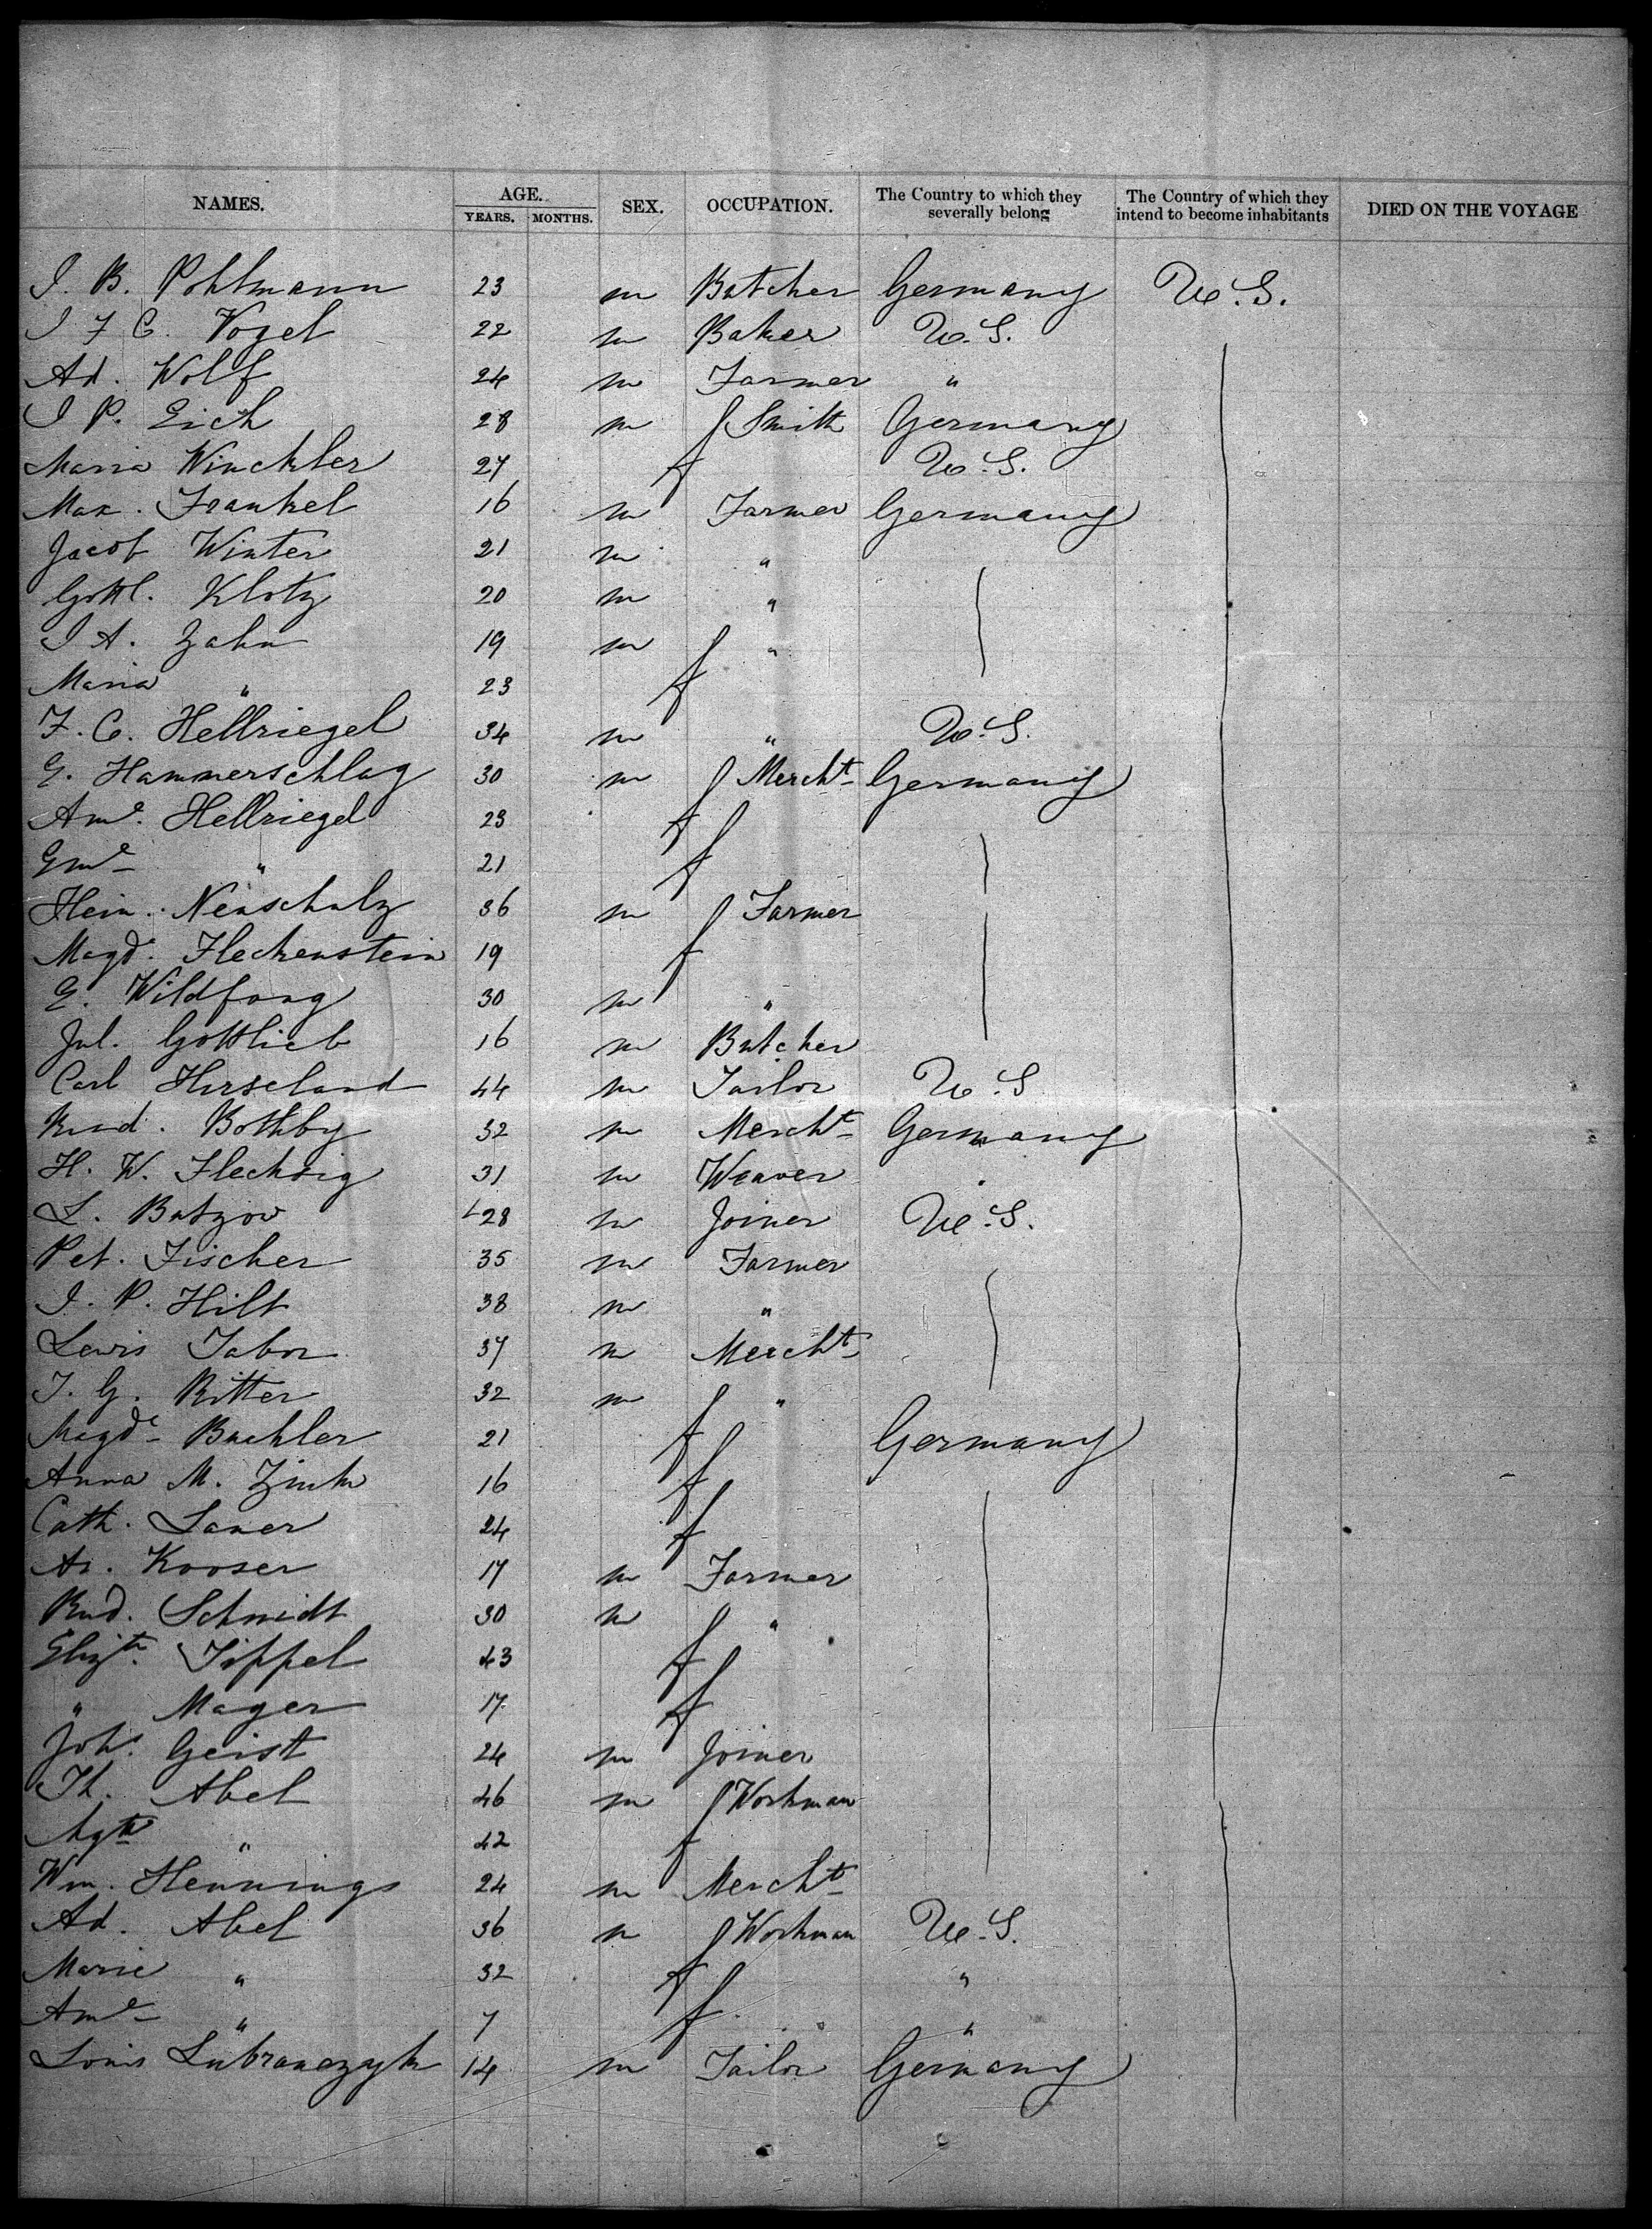 NAMES. AGE. YEARS. MONTHS. SEX. OCCUPATION. The Country to which they severally belong The Country of which they intend to become inhabitants DIED ON THE VOYAGE
I. B. Pohlmann 23 m Butcher Germany U.S.
I F C. Vogel 22 m Baker U.S.
Ad. Wolf 24 m Farmer "
I P. Eich 28 m Smith Germany
Maria Winckler 27 f U.S.
Max. Frankel 16 m Farmer Germany
Jacob Winter 21 m "
Gottl. Klotz 20 m "
I A. Zahn 19 m "
Maria " 23 f
F. C. Hellriegel 34 m " U.S.
E. Hammerschlag 30 m Mercht Germany
Ame. Hellriegel 23 f
Eme " 21 f
Hein. Neuschulz 36 m Farmer
Magd. Fleckenstein 19 f
E. Wildfang 30 m "
Jul. Gottlieb 16 m Butcher
Carl Hirseland 44 m Tailor U.S
Rud. Bothby 32 m Mercht Germany
H. W. Flechsig 31 m Weaver
L. Butzow 28 m Joiner U.S.
Pet. Fischer 35 m Farmer
I. P. Hilt 38 m "
Lewis Tabor 37 m Mercht
I. G. Ritter 32 m "
Magde Buehler 21 f Germany
Anna M. Zink 16 f
Cath. Lauer 24 f
Ar. Kooser 17 m Farmer
Rud. Schmidt 30 m "
Elizth. Tippel 43 f
" Mager 17 f
Johs. Geist 24 m Joiner
Th. Abel 46 m Workman
Agte " 42 f
Wm. Hennings 24 m Mercht
Ad. Abel 36 m Workman U.S.
Marie " 32 f "
Ame " 7 f "
Louis Lubranczyk 14 m Tailor Germany